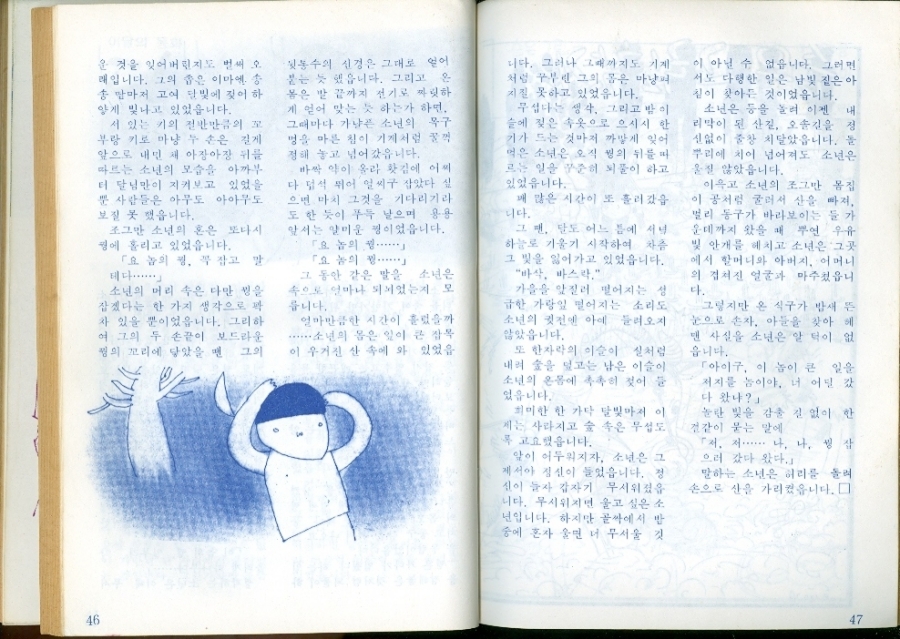 운 것을 잊어버린지도 벌써 오
래입니다. 그의 좁은 이마엔 송
송 땀마저 고여 달빛에 젖어 하
얗게 빛나고 있었습니다.
서 있는 키의 절반만큼의 꼬
부랑 키로 마냥 두 손은 길게
앞으로 내민 채 아장아장 뒤를
따르는 소년의 모습을 아까부
터 달님만이 지켜보고 있었을
뿐 사람들은 아무도 아아무도
보질 못 했습니다.
조그만 소년의 혼은 또다시
꿩에 홀리고 있었습니다.
「요 놈의 꿩, 꼭 잡고 말
테다……」
소년의 머리 속은 다만 꿩을
잡겠다는 한 가지 생각으로 꽉
차 있을 뿐이었습니다. 그리하
여 그의 두 손끝이 보드라운
꿩의 꼬리에 닿았을 땐 그의
뒷통수의 신경은 그대로 얼어
붙는 듯 했습니다. 그리고 온
몸은 발 끝까지 전기로 짜릿하
게 얻어 맞는 듯 하는가 하면,
그때마다 가냘픈 소년의 목구
멍을 마른 침이 기계처럼 꿀꺽
정해 놓고 넘어갔습니다.
바싹 약이 올라 왓칵에 어쩌
다 덥석 뛰어 얼씨구 잡았다 싶
으면 마치 그것을 기다리기라
도 한 듯이 푸득 날으며 용용
앞서는 얄미운 꿩이었습니다.
「요 놈의 꿩……」
「요 놈의 꿩……」
그 동안 같은 말을 소년은
속으로 얼마나 되뇌었는지 모
릅니다.
얼마만큼한 시간이 흘렀을까
……소년의 몸은 잎이 큰 잡목
이 우거진 산 속에 와 있었습
46
니다. 그러나 그때까지도 기계
처럼 꾸부린 그의 몸은 마냥 펴
지질 못하고 있었습니다.
무섭다는 생각, 그리고 밤 이
슬에 젖은 속옷으로 으시시 한
기가 드는 것마저 까맣게 잊어
먹은 소년은 오직 꿩의 뒤를 따
르는 일을 꾸준히 되풀이 하고
있었습니다.
꽤 많은 시간이 또 흘러갔습
니다.
그 땐, 달도 어느 틈에 서녘
하늘로 기울기 시작하여 차츰
그 빛을 잃어가고 있었습니다.
“바삭, 바스락,”
가을을 앞질러 떨어지는 성
급한 가랑잎 떨어지는 소리도
소년의 귓전엔 아예 들려오지
않았습니다.
또 한차락의 이슬이 실처럼
내려 숲을 덮고는 남은 이슬이
소년의 온몸에 촉촉히 젖어 들
었습니다.
희미한 한 가닥 달빛마저 이
제는 사라지고 숲 속은 무섭도
록 고요했습니다.
앞이 어두워지자, 소년은 그
제서야 정신이 들었습니다. 정
신이 들자 갑자기 무서워졌습
니다. 무서워지면 울고 싶은 소
년입니다. 하지만 골짝에서 밤
중에 혼자 울면 더 무서울 것
이 아닐 수 없습니다. 그러면
서도 다행한 일은 남빛 짙은 아
침이 찾아든 것이었습니다.
소년은 등을 돌려 이젠 내
리막이 된 산길, 오솔길을 정
신없이 줄창 치달았습니다. 돌
뿌리에 치어 넘어져도 소년은
울질 않았습니다.
이윽고 소년의 조그만 몸집
이 공처럼 굴러서 산을 빠져,
멀리 동구가 바라보이는 들 가
운데까지 왔을 때 뿌연 우유
빛 안개를 헤치고 소년은 그곳
에서 할머니와 아버지, 어머니
의 겹쳐진 얼굴과 마주쳤습니
다.
그렇지만 온 식구가 밤새 뜬
눈으로 손자, 아들을 찾아 헤
맨 사실을 소년은 알 턱이 없
습니다.
「아이구, 이 놈이 큰 일을
저지를 놈이야, 너 어딜 갔
다 왔냐?」
놀란 빛을 감출 길 없이 한
결같이 묻는 말에
「저, 저…… 나, 나, 꿩 잡
으러 갔다 왔다.」
말하는 소년은 허리를 돌려
손으로 산을 가리켰습니다. □
47